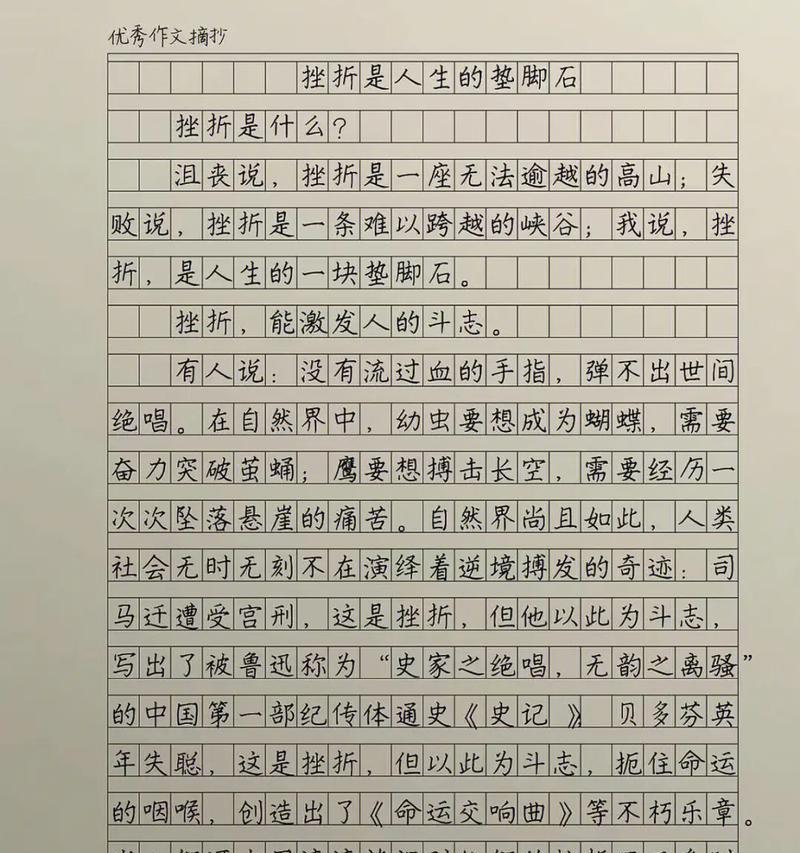 优秀作文摘抄
挫折是人生的垫脚石
挫折是什么?
沮丧说，挫折是一座无法逾越的高山；失
败说，挫折是一条难以跨越的峡谷；我说，挫
折，是人生的一块垫脚石。
挫折，能激发人的斗志。
有人说：没有流过血的手指，弹不出世间
绝唱。在自然界中，幼虫要想成为蝴蝶，需要
奋力突破茧蛹；鹰要想搏击长空，需要经历一
次次坠落悬崖的痛苦。自然界尚且如此，人类
社会无时无刻不在演绎着逆境搏发的奇迹：司
马迁遭受宫刑，这是挫折，但他以此为斗志，
写出了被鲁迅称为“史家之绝唱，无韵之离骚”
的中国第一部纪传体通史《史记》 贝多芬英
年失聪，这是挫折，但以此为斗志，扼住命运
的咽喉，创造出了《命运交响曲》等不朽乐章。